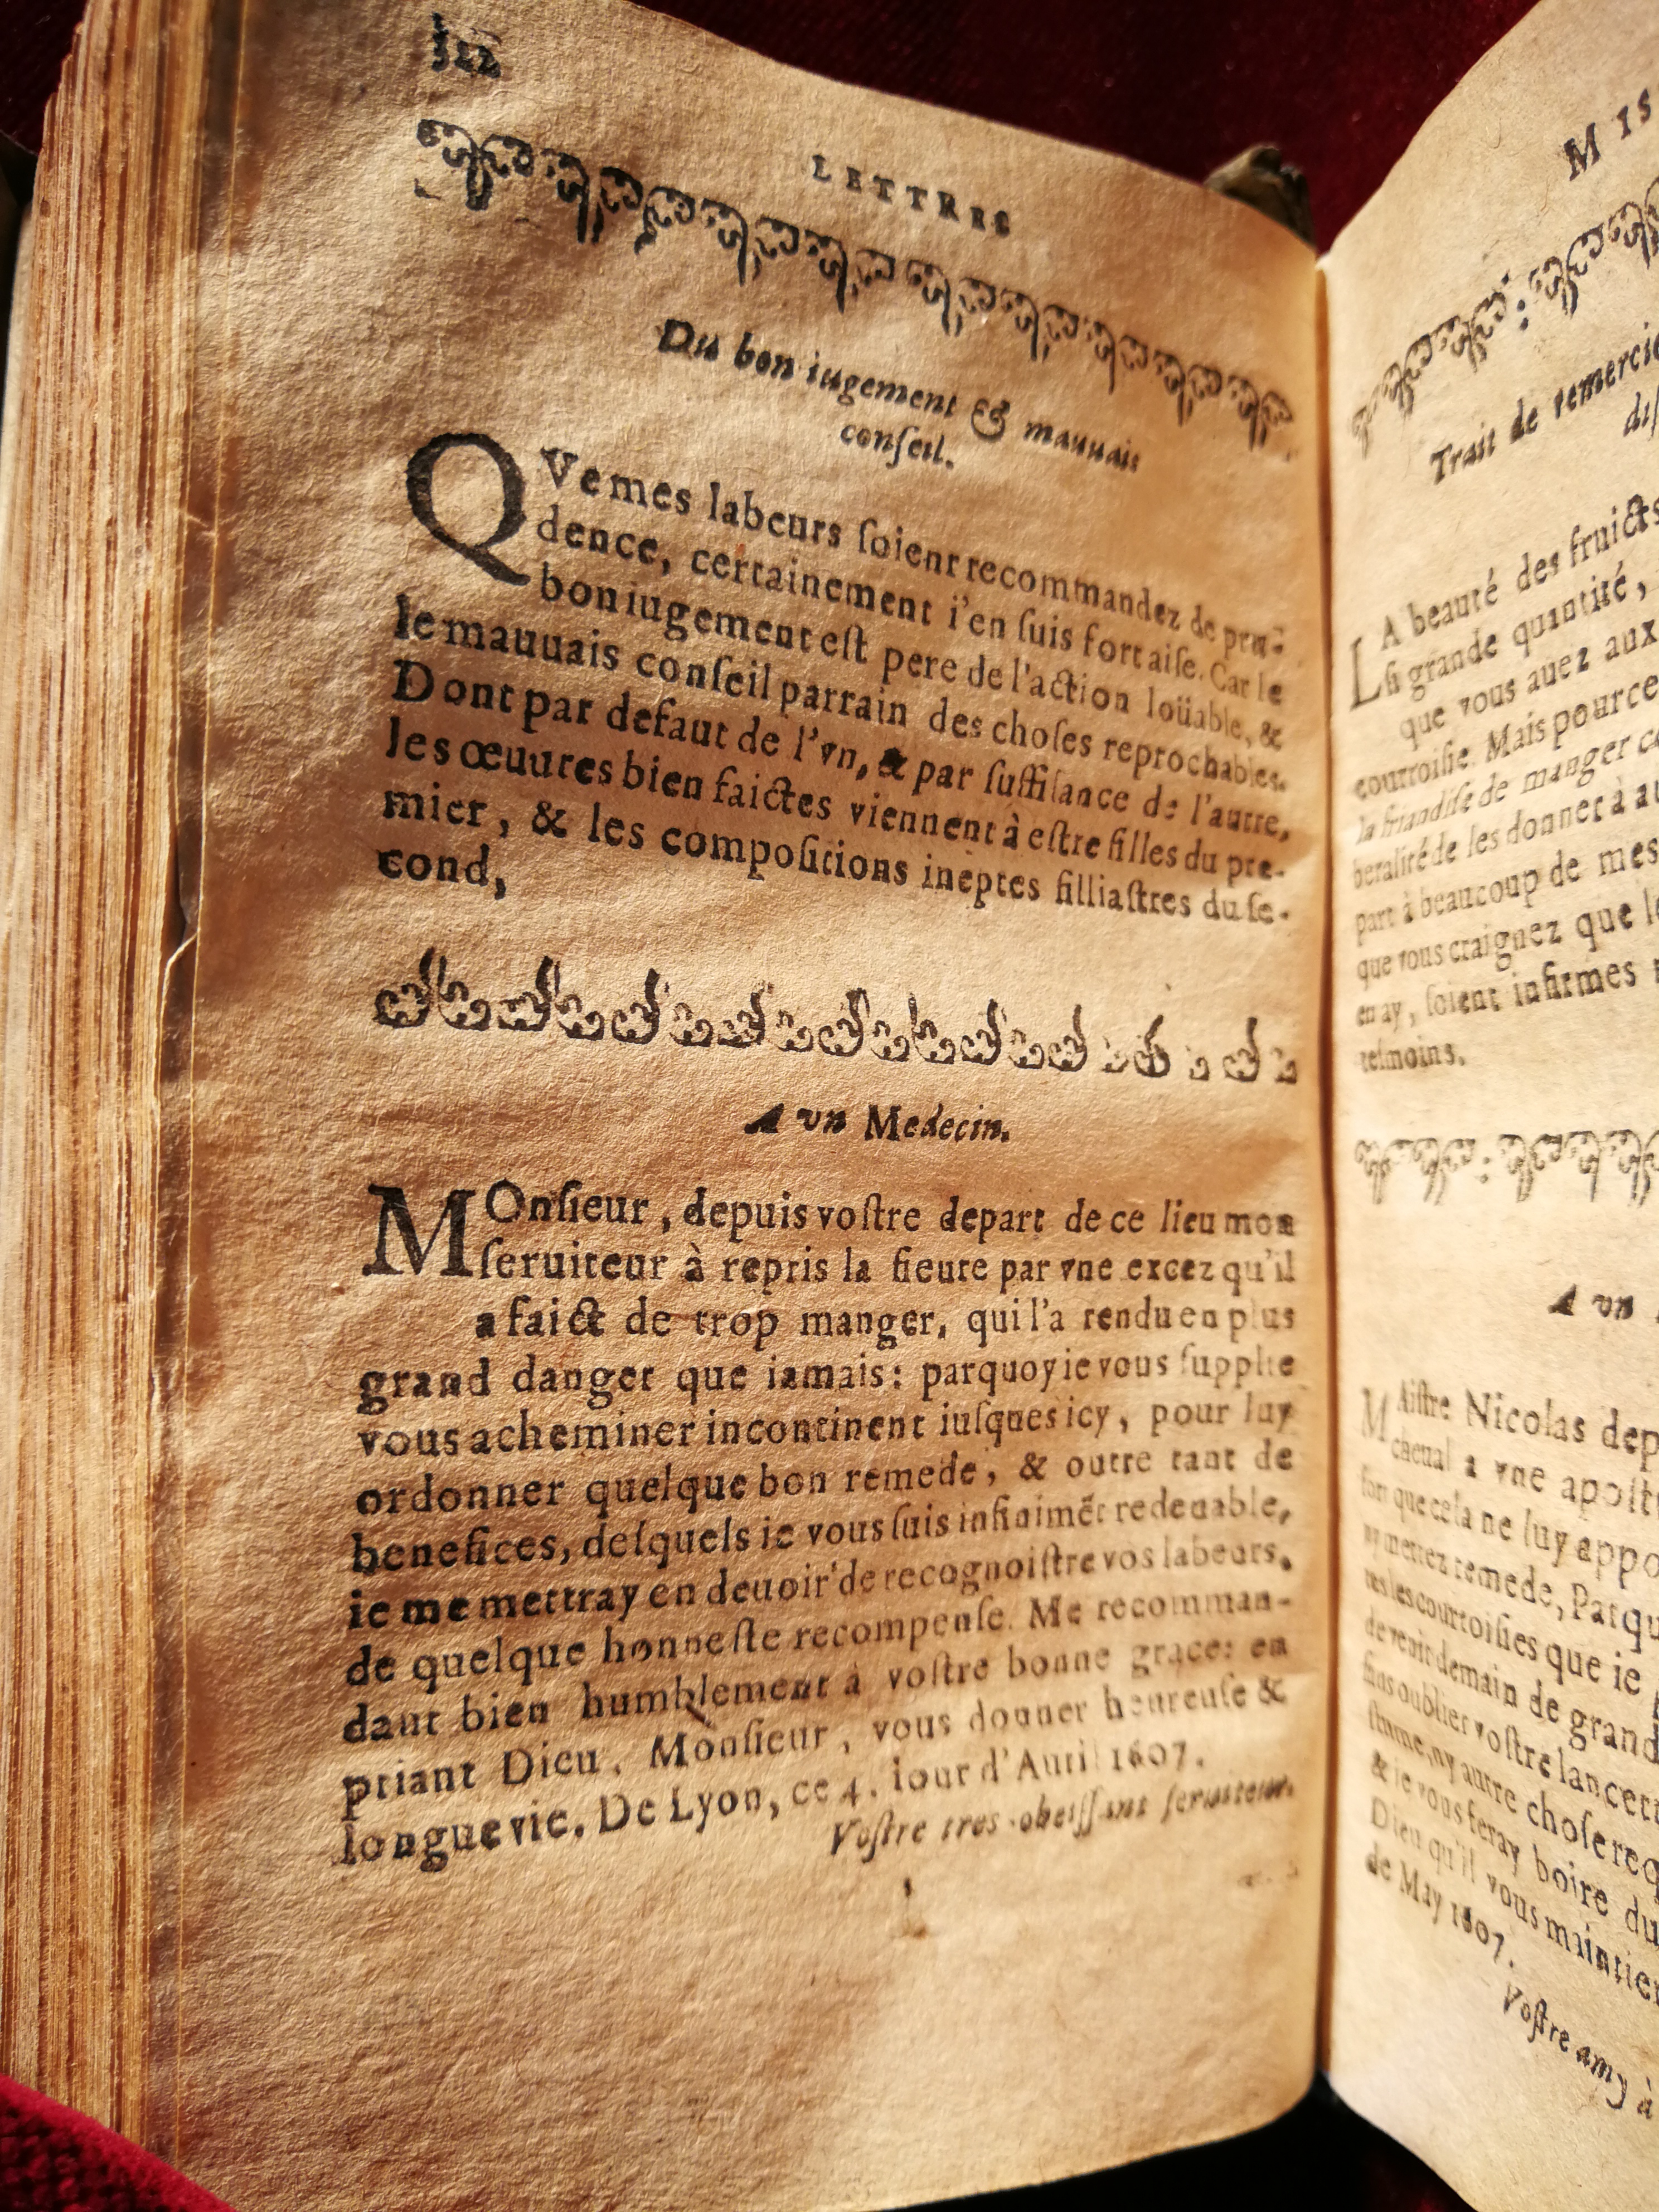 LETTRES
Du bon iugement & mauuais
conſeil.
QVe mes labeurs ſoient recommandez de pru-
dence, certainement i'en ſuis fort aiſe. Car le
bon iugement eſt pere de l'action loüable, &
le mauuais conſeil parrain des choſes reprochables.
Dont par defaut de l'vn, & par ſuffiſance de l'autre,
les œuures bien faictes viennent à eſtre filles du pre-
mier, & les compoſitions ineptes filliaſtres du ſe-
cond,
A vn Medecin.
MOnſieur, depuis voſtre depart de ce lieu mon
ſeruiteur à repris la fieure par vne excez qu'il
a faict de trop manger, qui l'a rendu en plus
grand danger que iamais: parquoy ie vous ſupplie
vous acheminer incontinent iuſques icy, pour luy
ordonner quelque bon remede, & outre tant de
benefices, deſquels ie vous ſuis infinimẽt redeuable,
ie me mettray en deuoir de recognoiſtre vos labeurs,
de quelque honneſte recompenſe. Me recomman-
dant bien humblement à voſtre bonne grace: en
priant Dieu, Monſieur, vous donner heureuſe &
longue vie. De Lyon, ce 4. iour d'Auril 1607.
Voſtre tres-obeiſſant ſeruiteur.
MIS
Trait de remercie
LA beauté des fruicts
ſi grande quantité,
que vous auez aux
courtoiſie. Mais pource
la friandiſe de manger
beralité de les donner à
part à beaucoup de mes
que vous craignez que
en ay, ſoient infirmes
teſmoins.
A vn
MAiſtre Nicolas dep
cheual a vne apoſt
fort que cela ne luy appo
ny mettez remede, Parqu
tes les courtoiſies que ie
de venir demain de grand
ſans oublier voſtre lancett
ny autre choſe req
& ie vous feray boire du
Dieu qu'il vous maintien
de May 1607.
Voſtre amy à